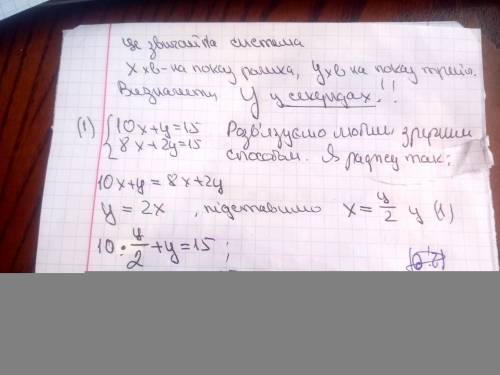 це звичайна система
X хв - на показ ролика, y хв на показ трейл.
Визначаєти y у секундах!!
(1) {10x+y=15 Розв'язуємо любим зручним
8x+2y=15 способом. Я раджу так:
10x+y = 8x+2y
y = 2x , підставимо x = y/2 у (1)
10 · y/2 + y = 15 ;